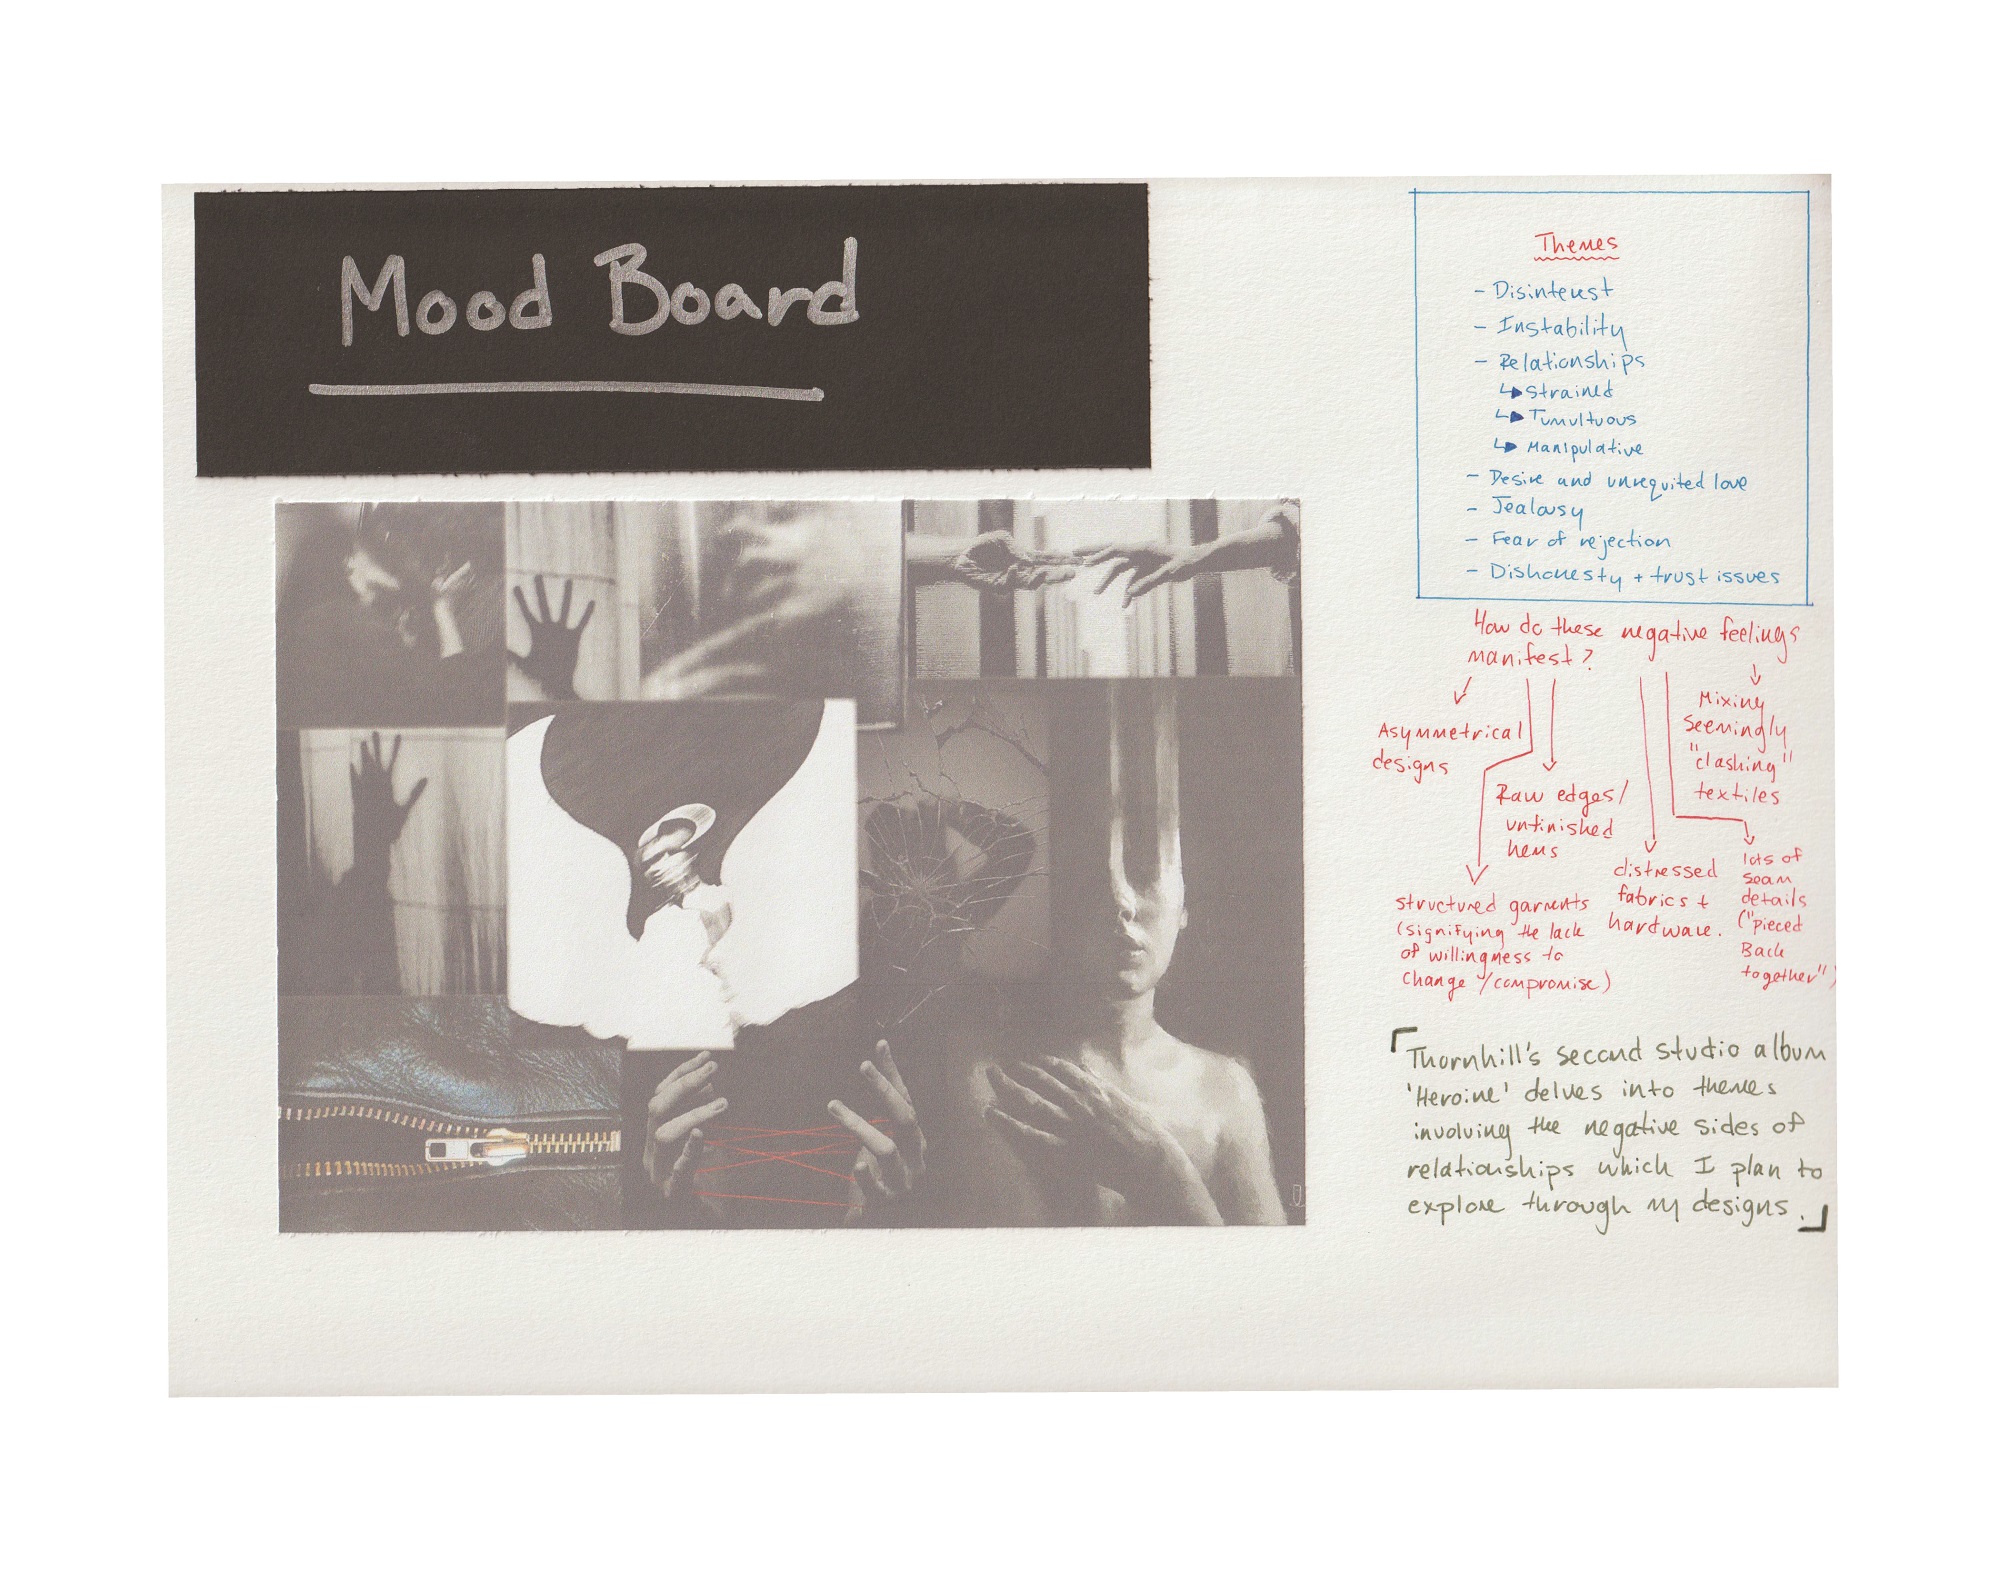 Mood Board
Themes
- Disinterest
- Instability
- Relationships
↳ Strained
↳ Tumultuous
↳ Manipulative
- Desire and unrequited love
- Jealousy
- Fear of rejection
- Dishonesty + trust issues
How do these negative feelings
manifest?
Asymmetrical
designs
structured garments
(signifying the lack
of willingness to
change /compromise)
Raw edges/
unfinished
hems
distressed
fabrics +
hardware.
Mixing
seemingly
"clashing"
textiles
lots of
seam
details
("pieced
Back
together")
「Thornhill's second studio album
'Heroine' delves into themes
involving the negative sides of
relationships which I plan to
explore through my designs.」